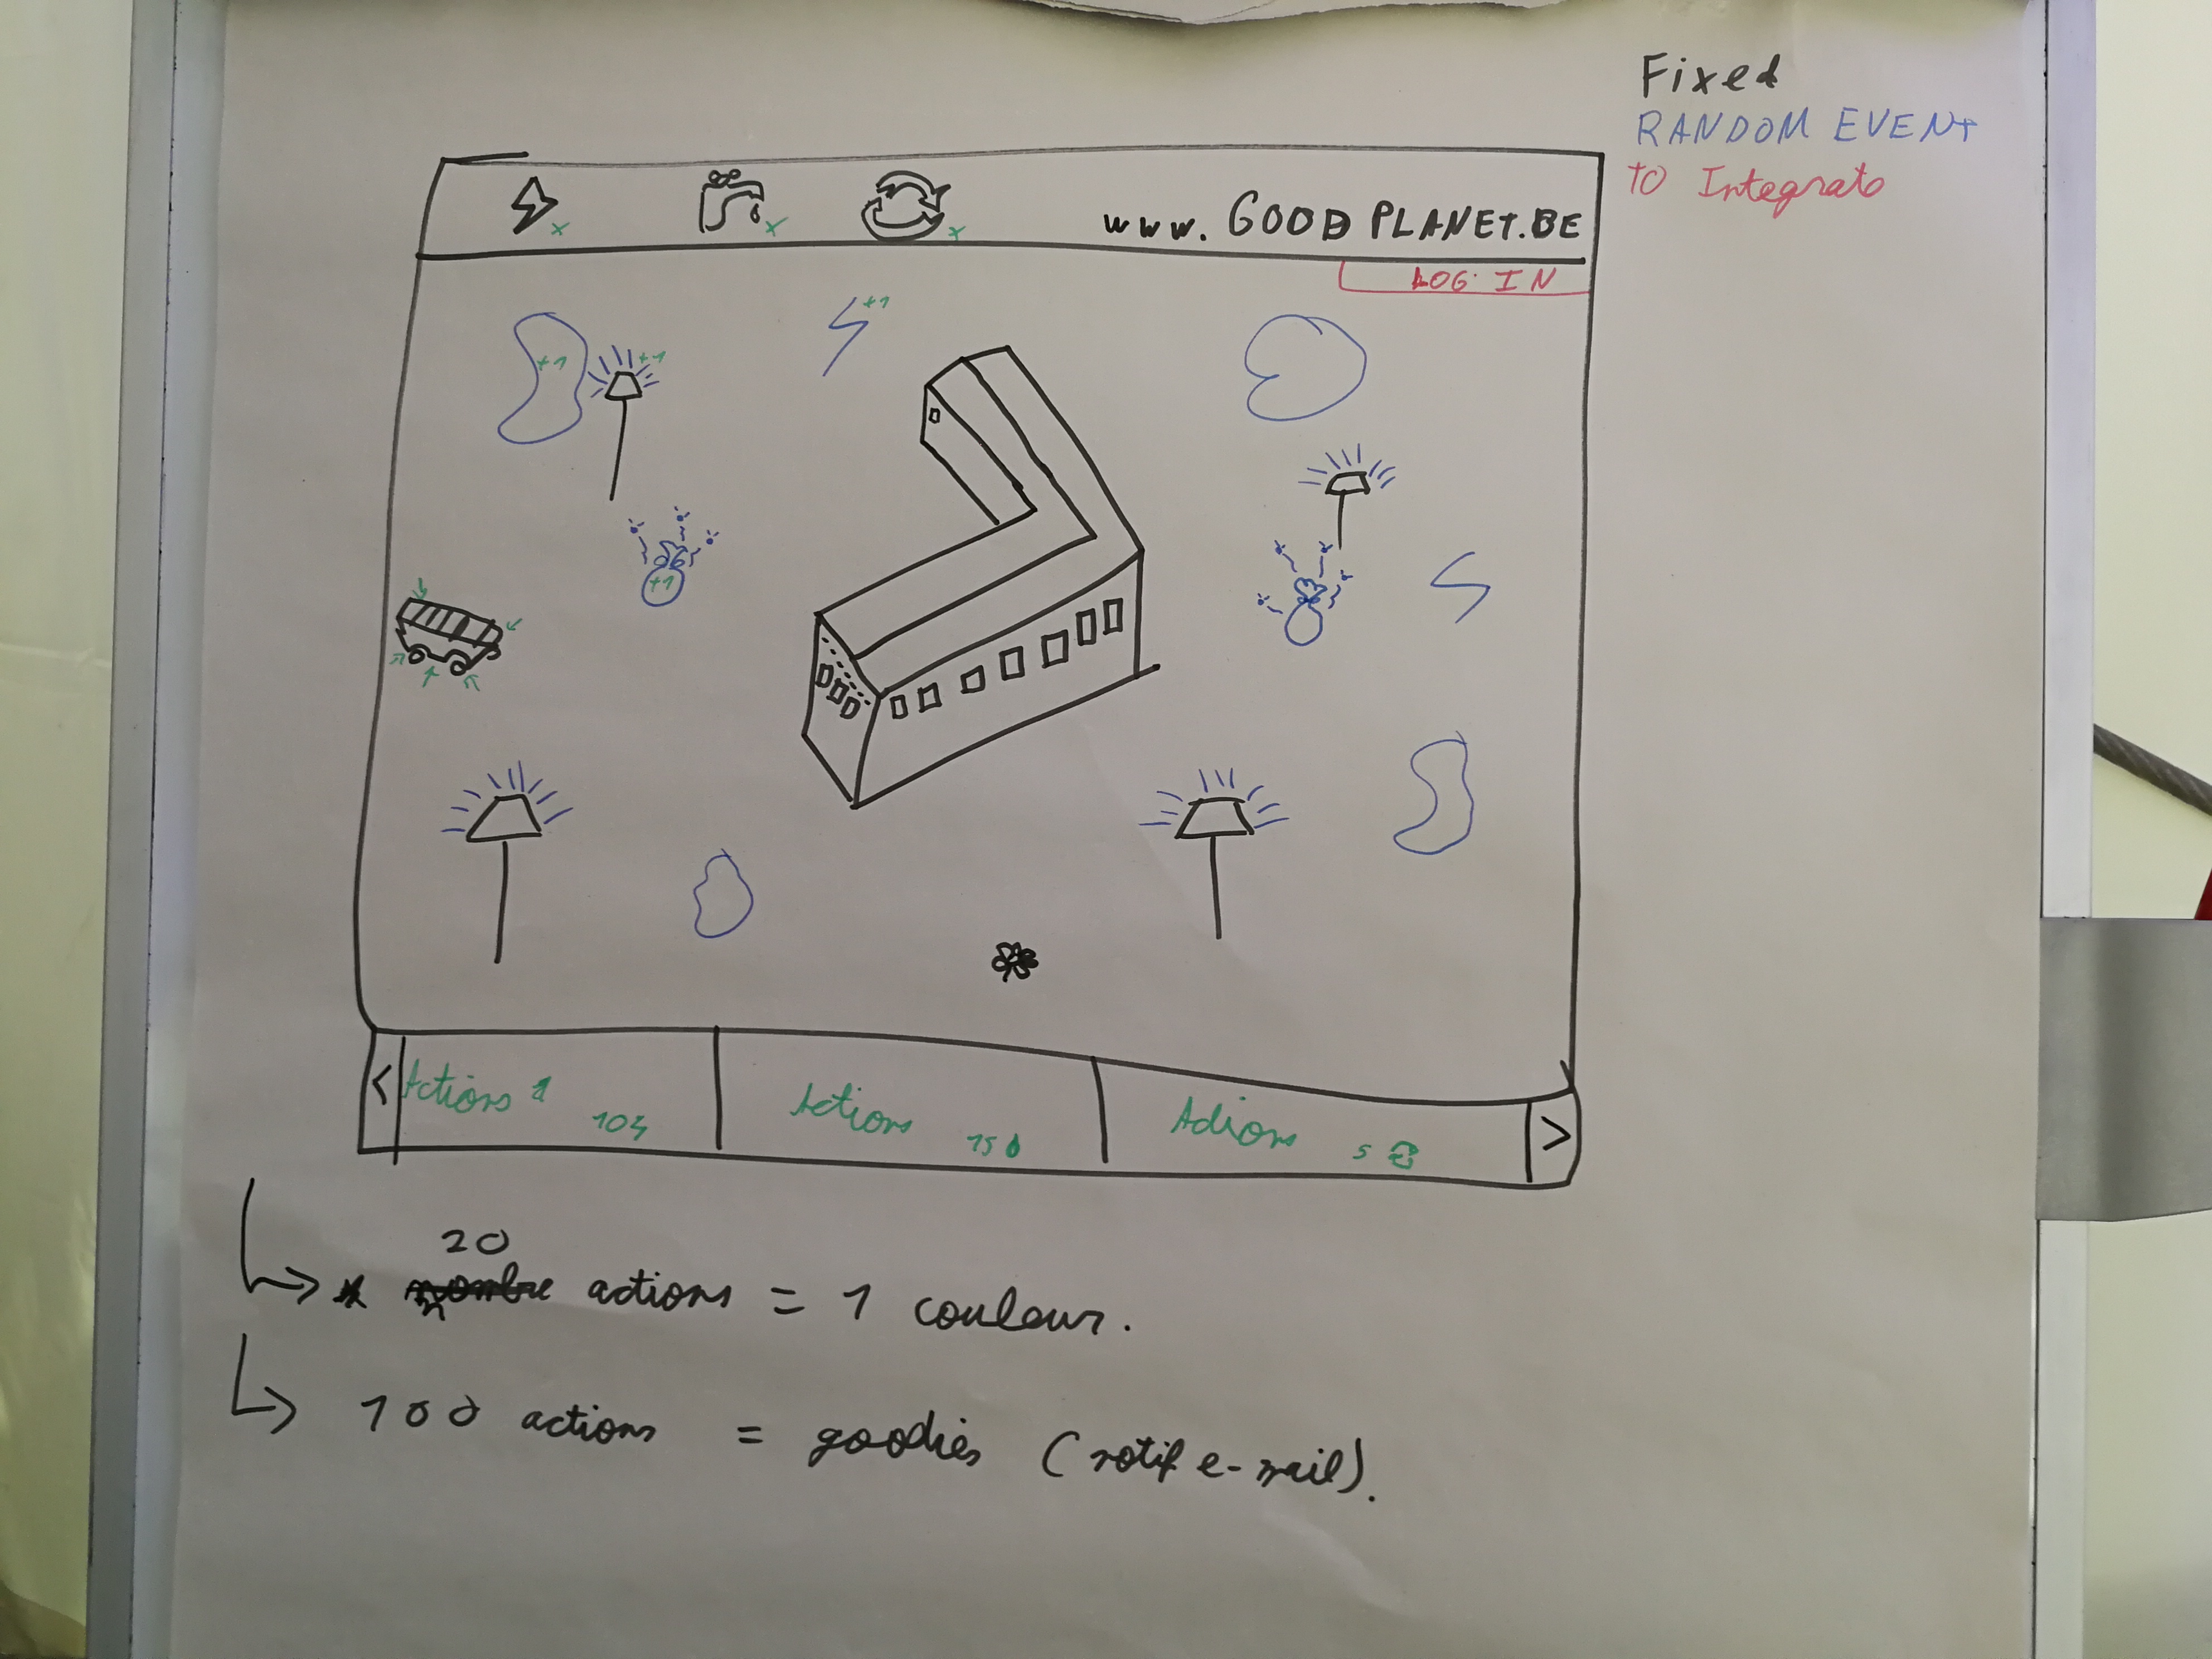 Fixed
RANDOM EVENT
to Integrate
x x x www.GOODPLANET.BE
LOG IN
+1 +1 +1
+1
< Actions 1 10 Actions 15 Actions 5 >
20
actions = 1 couleur.
100 actions = goodies (notif e-mail).